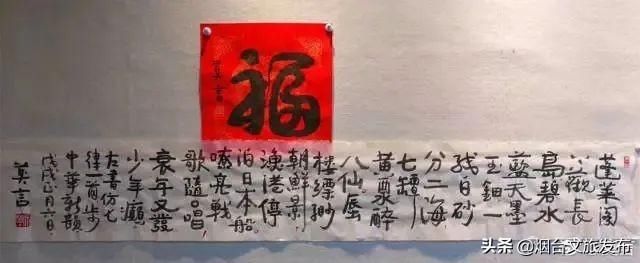 福
莫言
蓬莱阁
上观长
岛碧水
蓝天墨
玉钿一
线日砂
分二海
七罈
黄粱醉
八仙蜃
楼缥缈
朝鲜景
渔港停
泊日本船
嘹亮战
歌随口唱
衰年又發
少年癫
左书仿七
律一首步
中华新韵
戊戌正月六日
莫言
头条 @烟台文旅发布